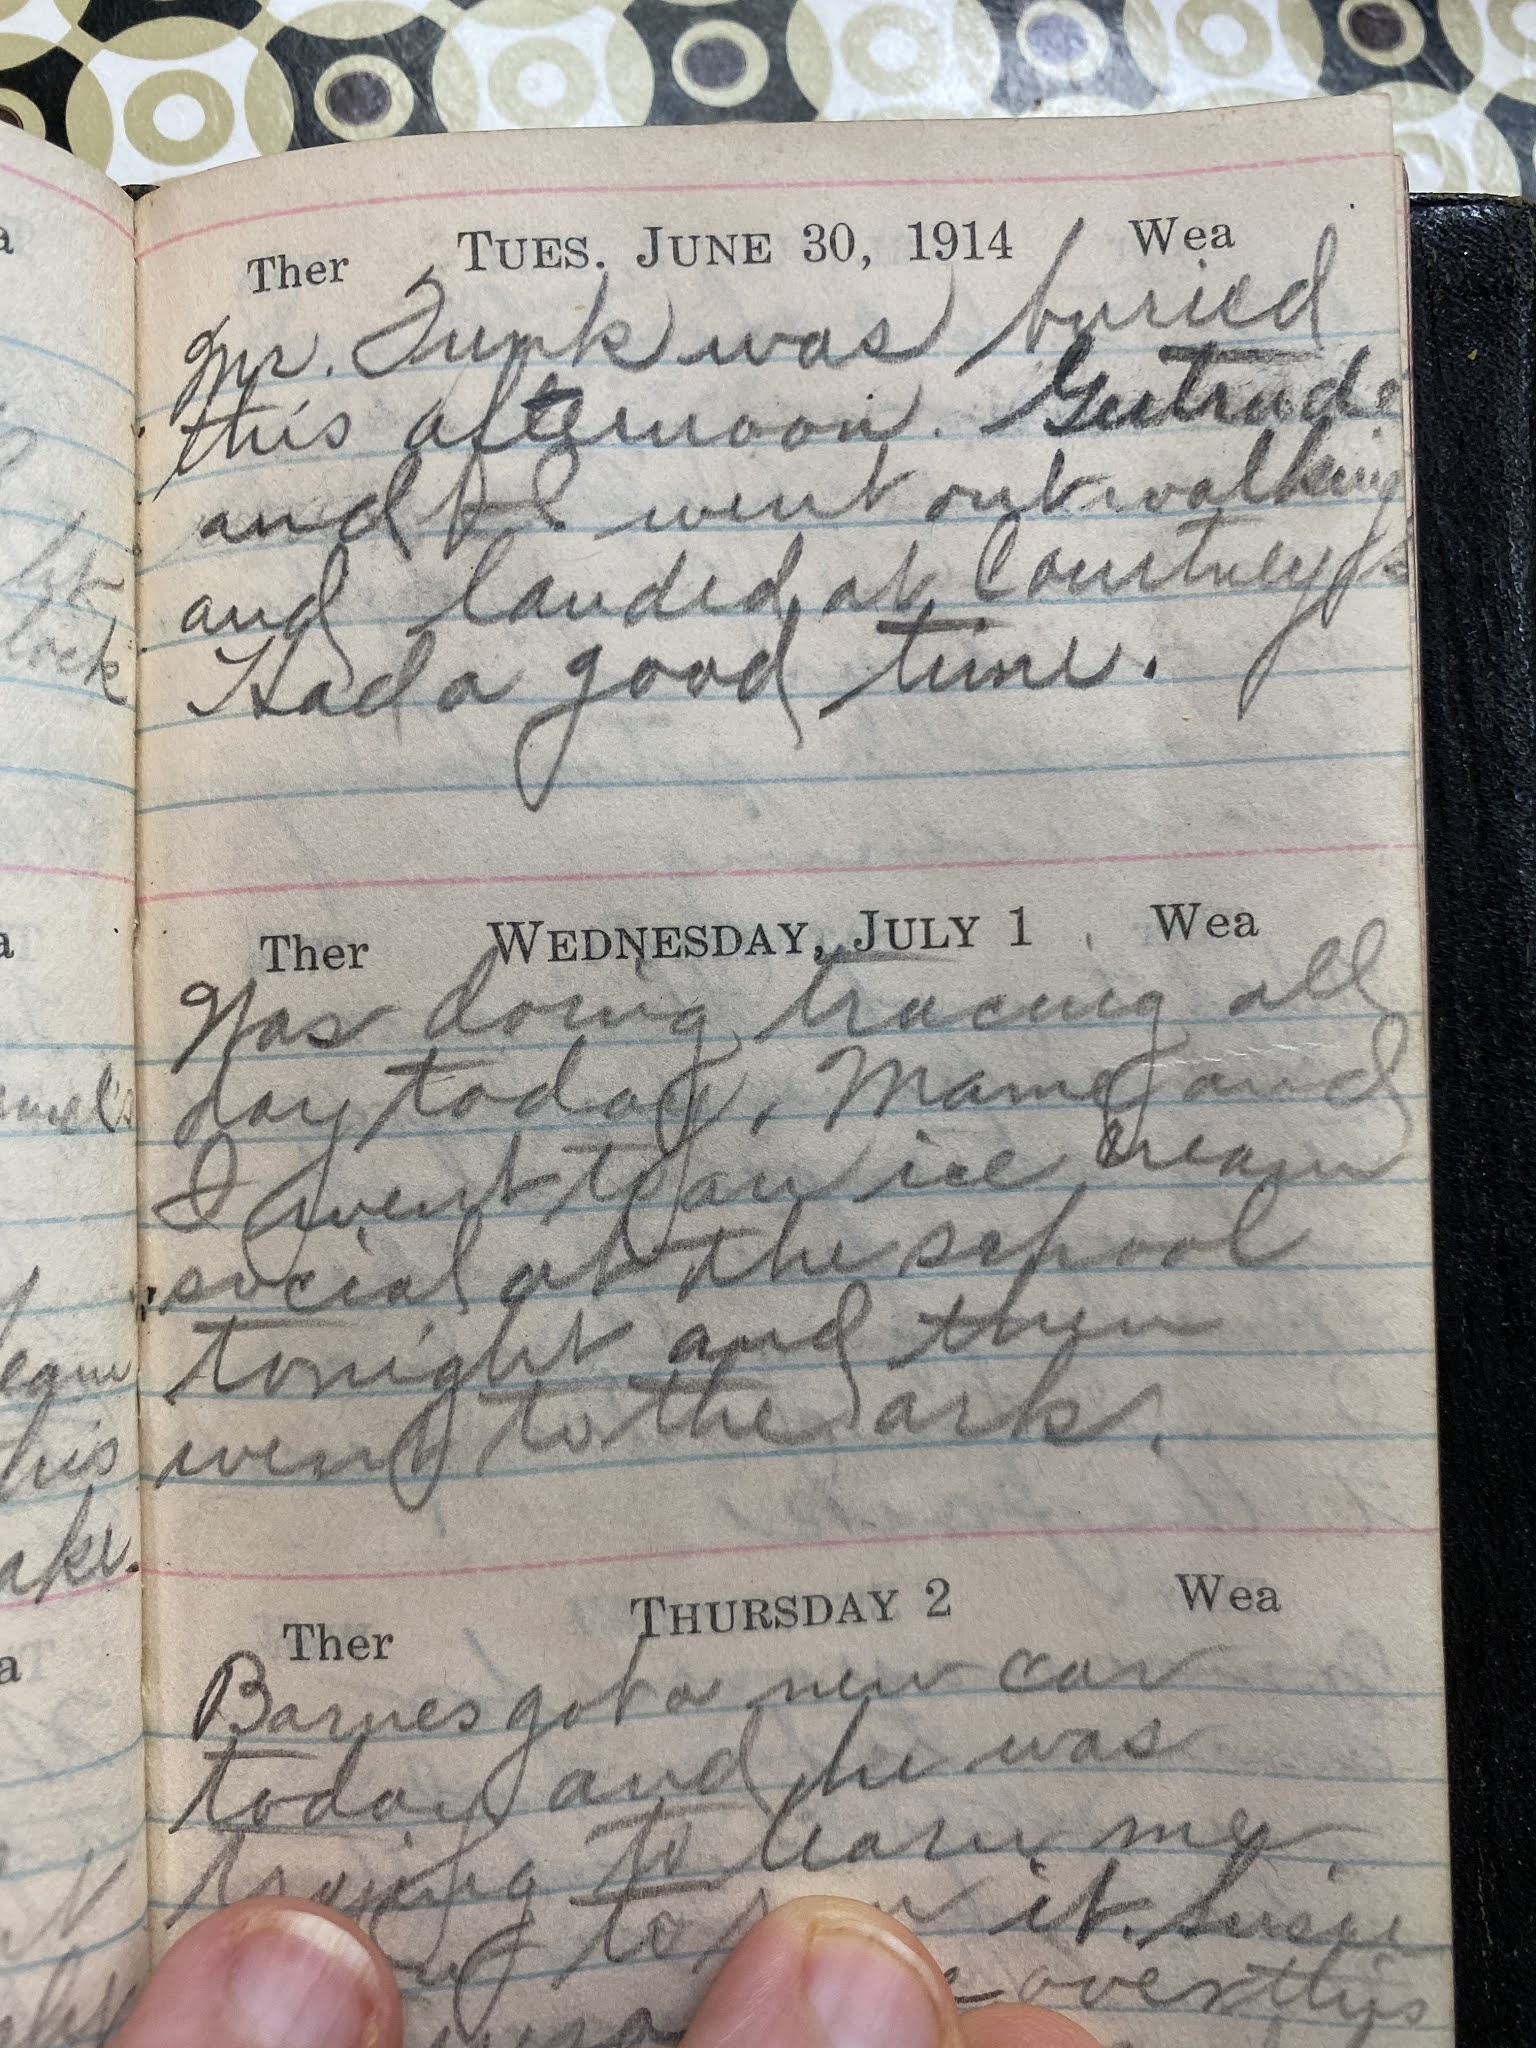 Ther TUES. JUNE 30, 1914 Wea
Mr. Funk was buried
this afternoon. Gertrude
and I went out walking
and landed at Courtney's
Had a good time.
Ther WEDNESDAY, JULY 1 Wea
Was doing tracing all
day today. Mame and
I went to an ice cream
social at the school
tonight and then
went to the ark.
Ther THURSDAY 2 Wea
Barnes got a new car
today and he was
trying to learn me
to it. Susie
over this